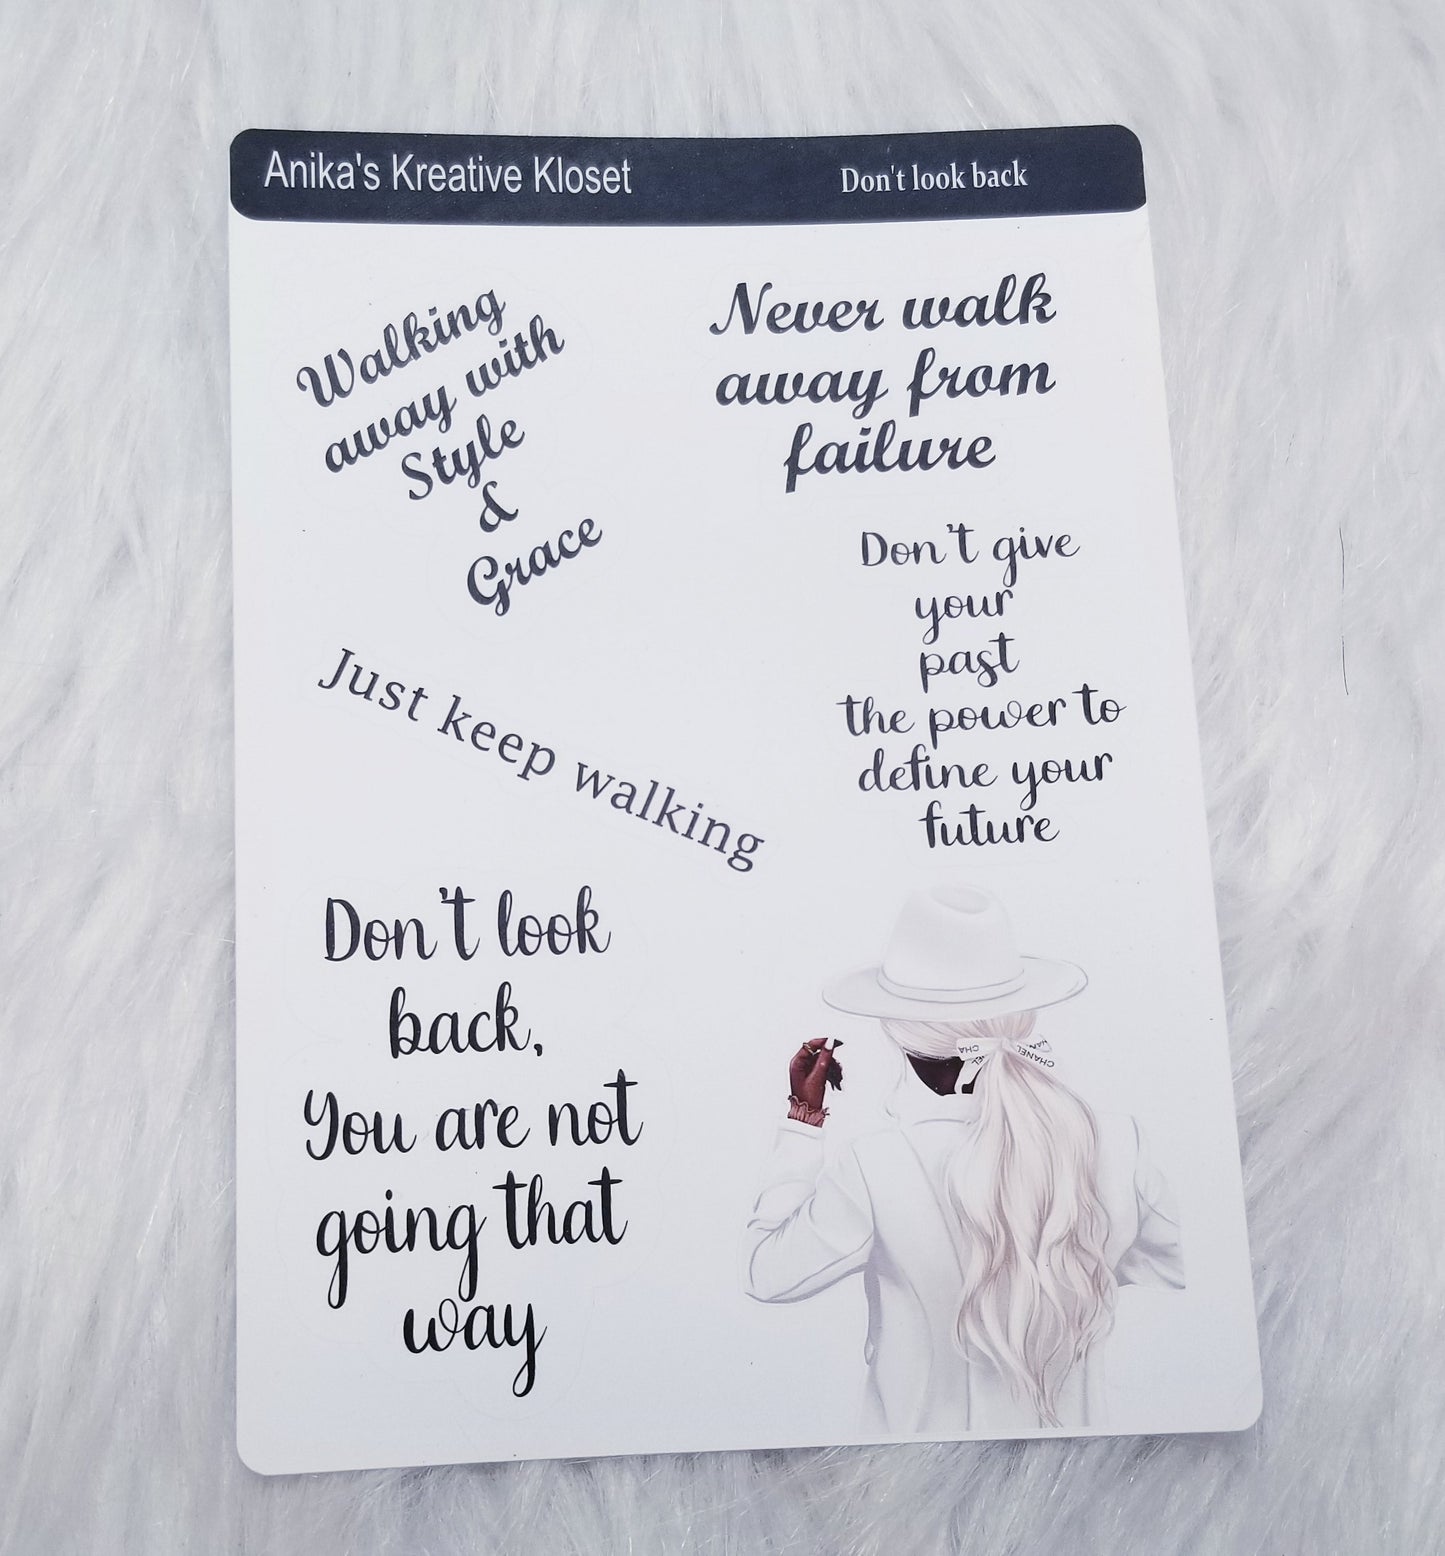 Anika's Kreative Kloset
Don't look back
Walking
away with
Style
&
Grace
Never walk
away from
failure
Don't give
your
past
the power to
define your
future
Just keep walking
Don't look
back,
You are not
going that
way
CHA
CHANEL